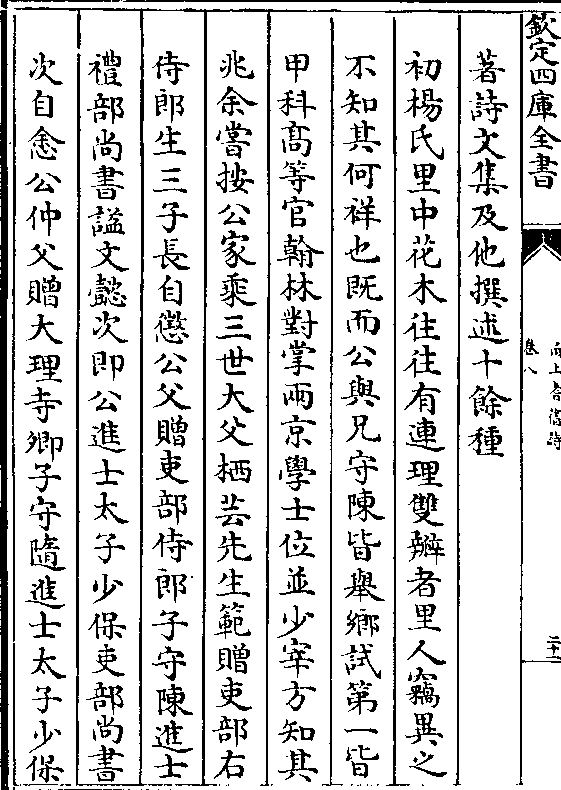 欽定四庫全書
卷八
二十一
著詩文集及他撰述十餘種
初楊氏里中花木往往有連理雙瓣者里人竊異之
不知其何祥也既而公與兄守陳皆舉鄉試第一皆
甲科高等官翰林對掌兩京學士位並少宰方知其
兆余嘗按公家乘三世大父栖芸先生範贈吏部右
侍郎生三子長自懲公父贈吏部侍郎子守陳進士
禮部尚書諡文懿次即公進士太子少保吏部尚書
次自悆公仲父贈大理寺卿子守隨進士太子少保